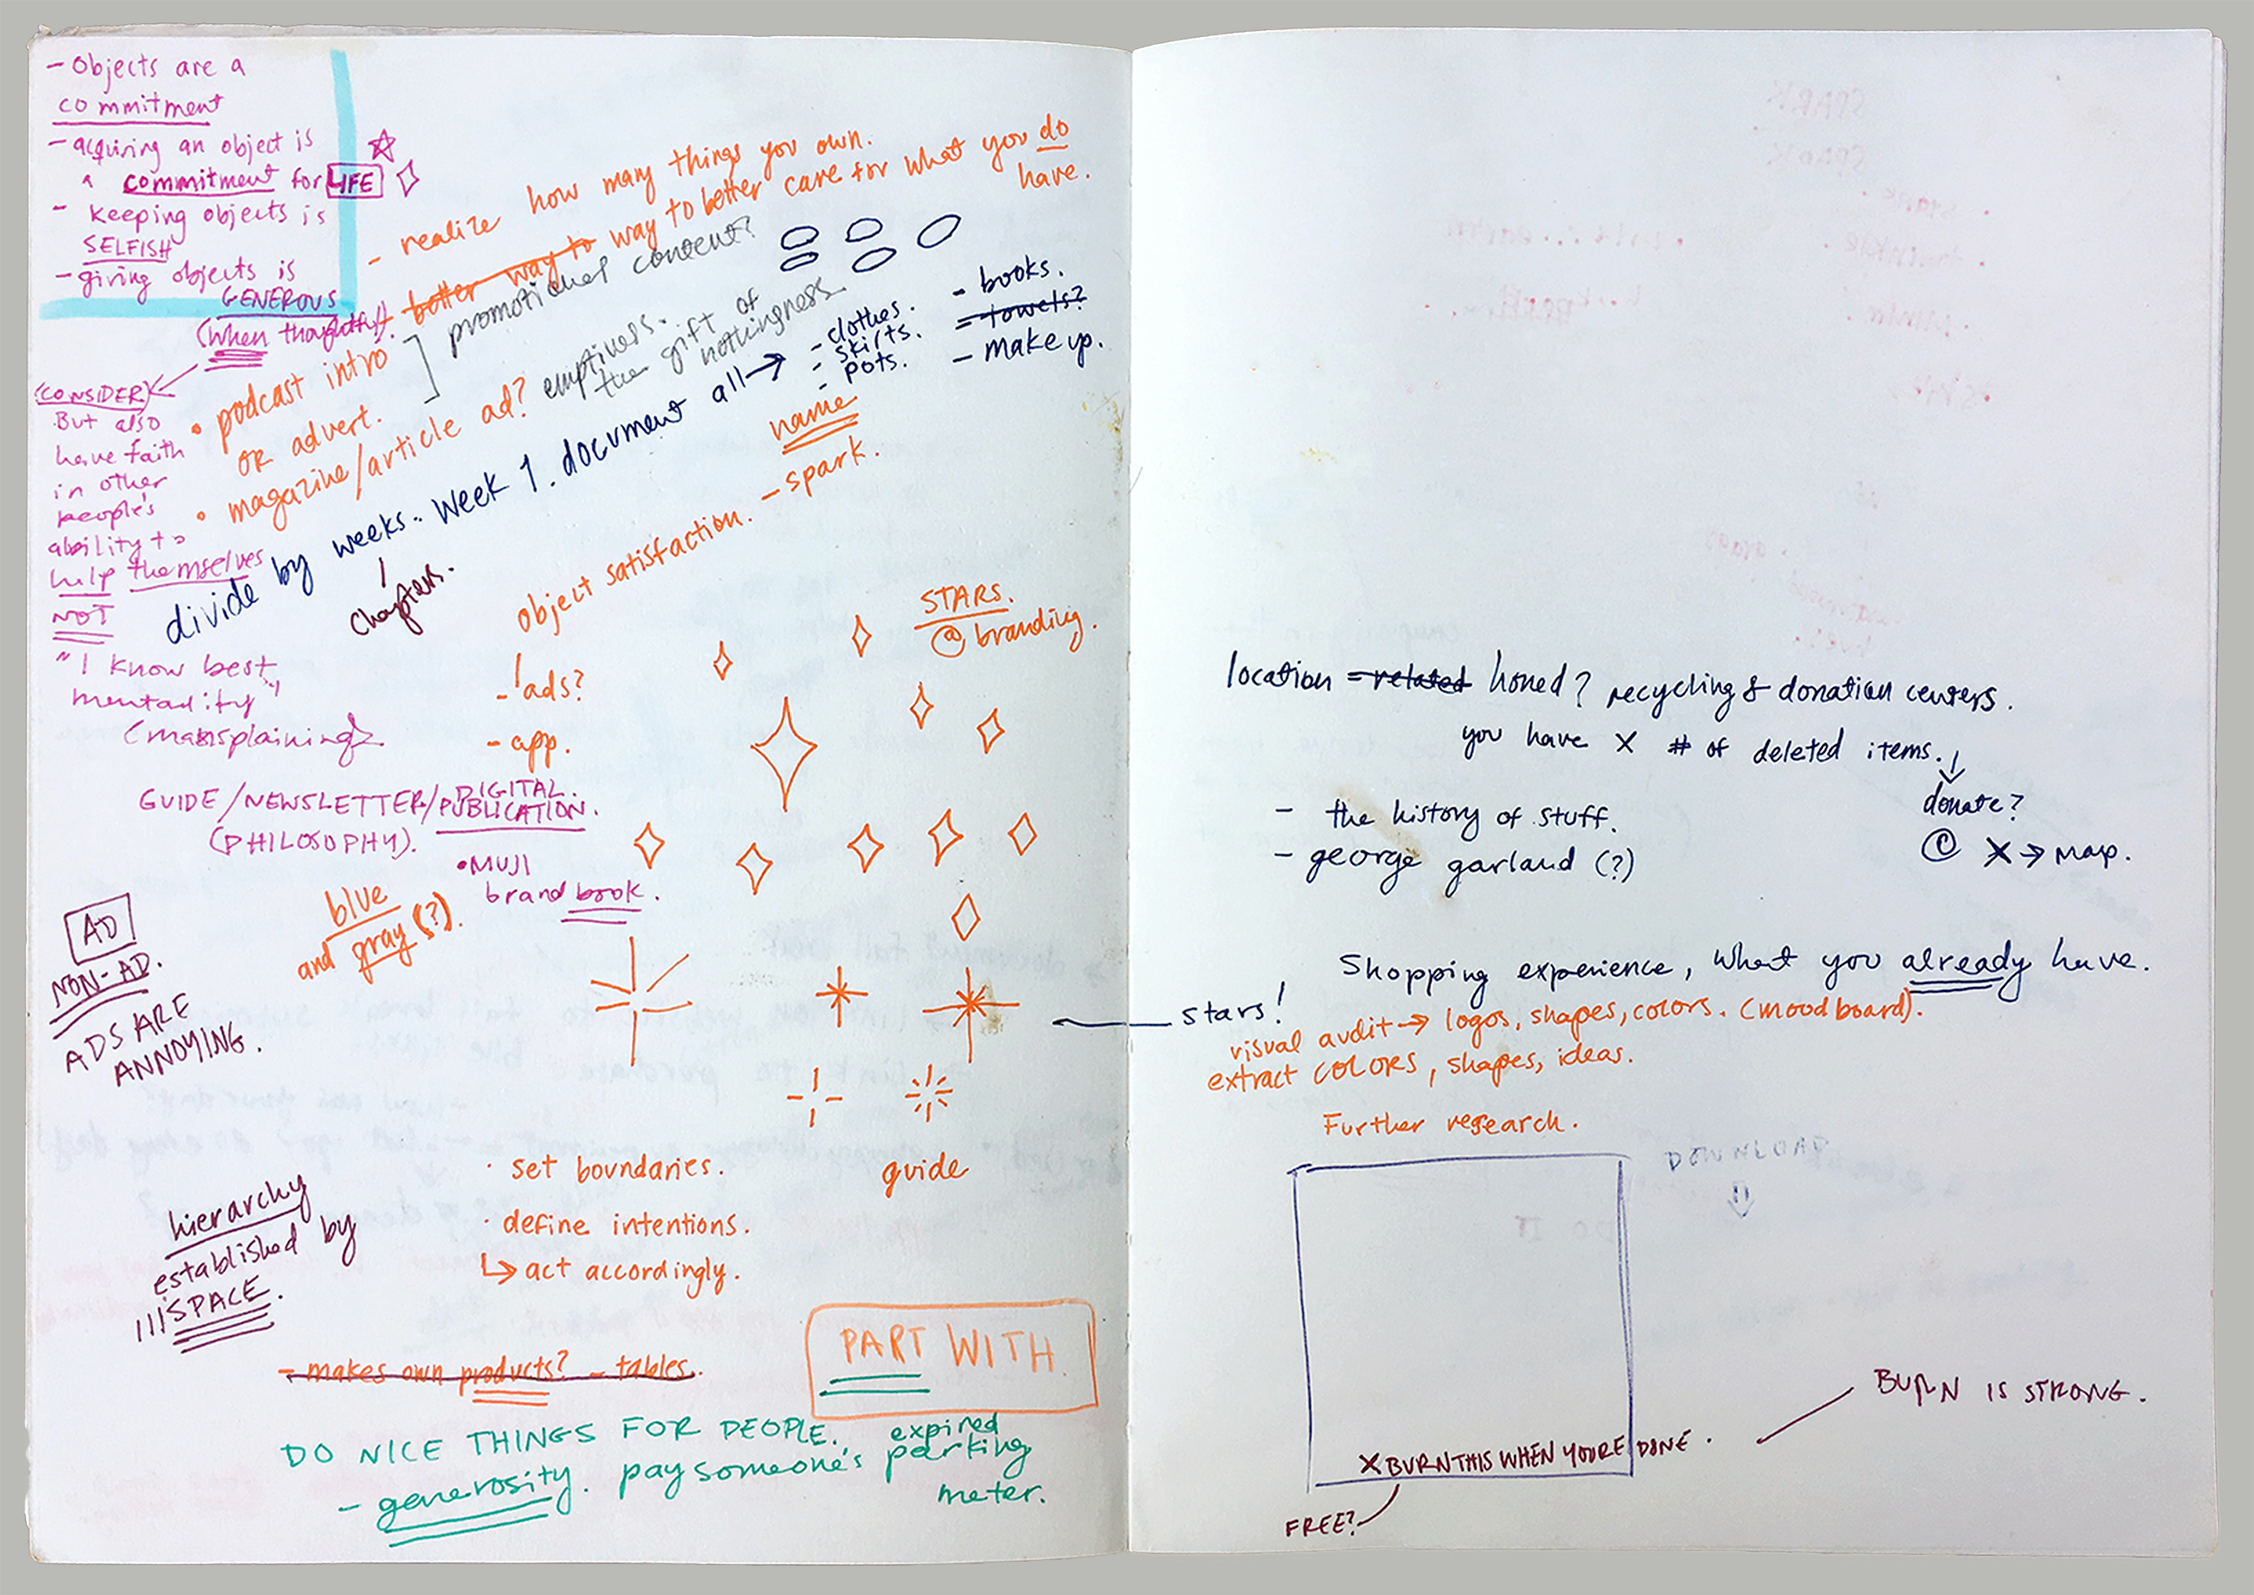 - Objects are a
commitment
- acquiring an object is
a commitment for LIFE
- keeping objects is
SELFISH
- giving objects is
GENEROUS
(when thoughtful).
(CONSIDER)
But also
have faith
in other
people's
ability to
help themselves
NOT
"I know best"
mentality
(mansplaining)
- realize how many things you own.
- better way to way to better care for what you do
have.
promotional content?
• podcast intro
or advert.
• magazine/article ad?
emptiness.
the gift of
nothingness
divide by weeks. Week 1. document all →
chapters.
- clothes.
- skirts.
- pots.
- books.
- towels?
- make up.
name
- spark.
object satisfaction.
- ads?
- app.
STARS.
@ branding.
GUIDE/NEWSLETTER/DIGITAL.
PUBLICATION.
(PHILOSOPHY).
• MUJI
brand book.
blue
and gray (?).
AD
NON-AD.
ADS ARE
ANNOYING.
• set boundaries.
• define intentions.
↳ act accordingly.
guide
hierarchy
established by
SPACE.
- makes own products? - tables.
PART WITH.
DO NICE THINGS FOR PEOPLE.
- generosity. pay someone's expired
parking
meter.
location - related honed? recycling & donation centers.
you have X # of deleted items.
donate?
@ X → map.
- the history of stuff.
- george garland (?)
Shopping experience, what you already have.
stars!
visual audit → logos, shapes, colors. (moodboard).
extract colors, shapes, ideas.
Further research.
DOWNLOAD
X BURN THIS WHEN YOURE DONE.
BURN IS STRONG.
FREE?